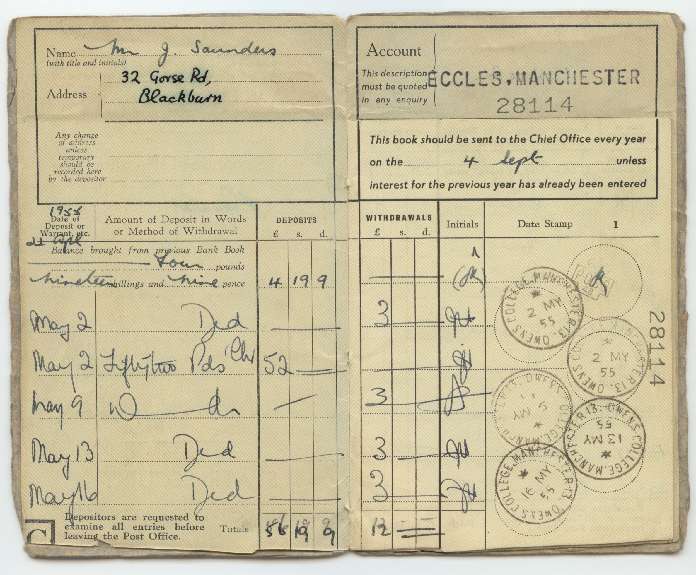 Name Mr J. Saunders
(with title and initials)
Address 32 Gorse Rd,
Blackburn
Any change
of address
unless
temporary
should be
recorded here
by the depositor
Account
This description
must be quoted
in any enquiry
ECCLES, MANCHESTER
28114
This book should be sent to the Chief Office every year
on the 4 Sept unless
interest for the previous year has already been entered
1955
Date of
Deposit or
Warrant, etc.
Amount of Deposit in Words
or Method of Withdrawal
DEPOSITS
£ s. d.
WITHDRAWALS
£ s. d.
Initials
Date Stamp 1
Balance brought from previous Bank Book
four pounds
nineteen shillings and nine pence 4 19 9
May 2 3
May 2 Fiftytwo Pds 52
May 9 3
May 13 3
May 16 3
Depositors are requested to
examine all entries before
leaving the Post Office.
Totals 56 19 9 12
28114
OWENS COLLEGE, MANCHESTER 13.
2 MY
55
OWENS COLLEGE, MANCHESTER 13.
2 MY
55
OWENS COLLEGE, MANCHESTER 13.
13 MY
55
OWENS COLLEGE, MANCHESTER 13.
16 MY
55